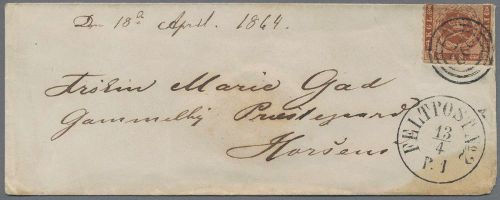 Den 18d April. 1864.
Frökin Marie Gad
Gammelby Præstegaard
Horsens
FELTPOST No 2
13
4
P. 1